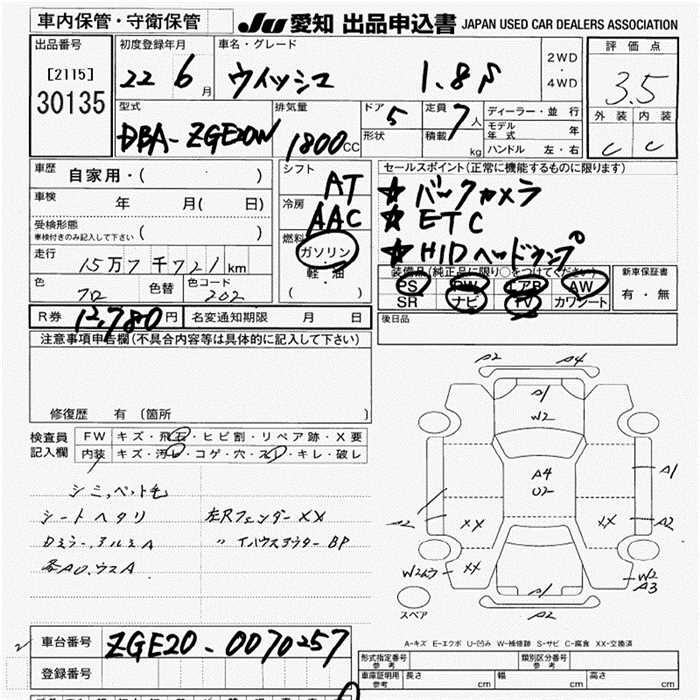 車内保管・守衛保管
JU 愛知 出品申込書 JAPAN USED CAR DEALERS ASSOCIATION
出品番号
[2115]
30135
初度登録年月
22 6 月
車名・グレード
ウイッシュ 1.8S
2WD
・
4WD
評価点
3.5
外装 内装
C C
型式
DBA-ZGE20W
排気量
1800 CC
ドア 5
形状
定員 7 人
積載 kg
ディーラー・並行
モデル年式 年
ハンドル 左・右
車歴 自家用・( )
車検 年 月( 日)
受検形態
車検付きのみ記入して下さい ( )
走行 15万7千721km
色 クロ 色替 色コード 202
シフト AT
冷房 AAC
燃料 ガソリン
・
軽・油
( )
セールスポイント(正常に機能するものに限ります)
★ バックカメラ
★ ETC
★ HIDヘッドランプ
装備品(純正品に限り○をつけてください)
PS PW エアB AW
SR ナビ TV カワシート
新車保証書
有・無
R券 12,780円 名変通知期限 月 日
後日品
注意事項申告欄(不具合内容等は具体的に記入して下さい)
修復歴 有 〔箇所 〕
検査員
記入欄
FW キズ・飛石・ヒビ割・リペア跡・X要
内装 キズ・汚レ・コゲ・穴・スレ・キレ・破レ
シミ,ペット毛
シートヘタリ 左Rフェンダー XX
Dミラー,アルミA 〃 イハウスアウター BP
各A0,ウスA
A2 A4
A1
W2
A4
U2
A1
A2
XX
XX
A2
W2ムラ
XX
W2
A3
A1
A2
スペア
A-キズ E-エクボ U-凹み W-補修跡 S-サビ C-腐食 XX-交換済
車台番号 ZGE20-0070257
登録番号
形式指定番号
参考
類別区分番号
参考
車庫証明用
参考
長さ cm 幅 cm 高さ cm